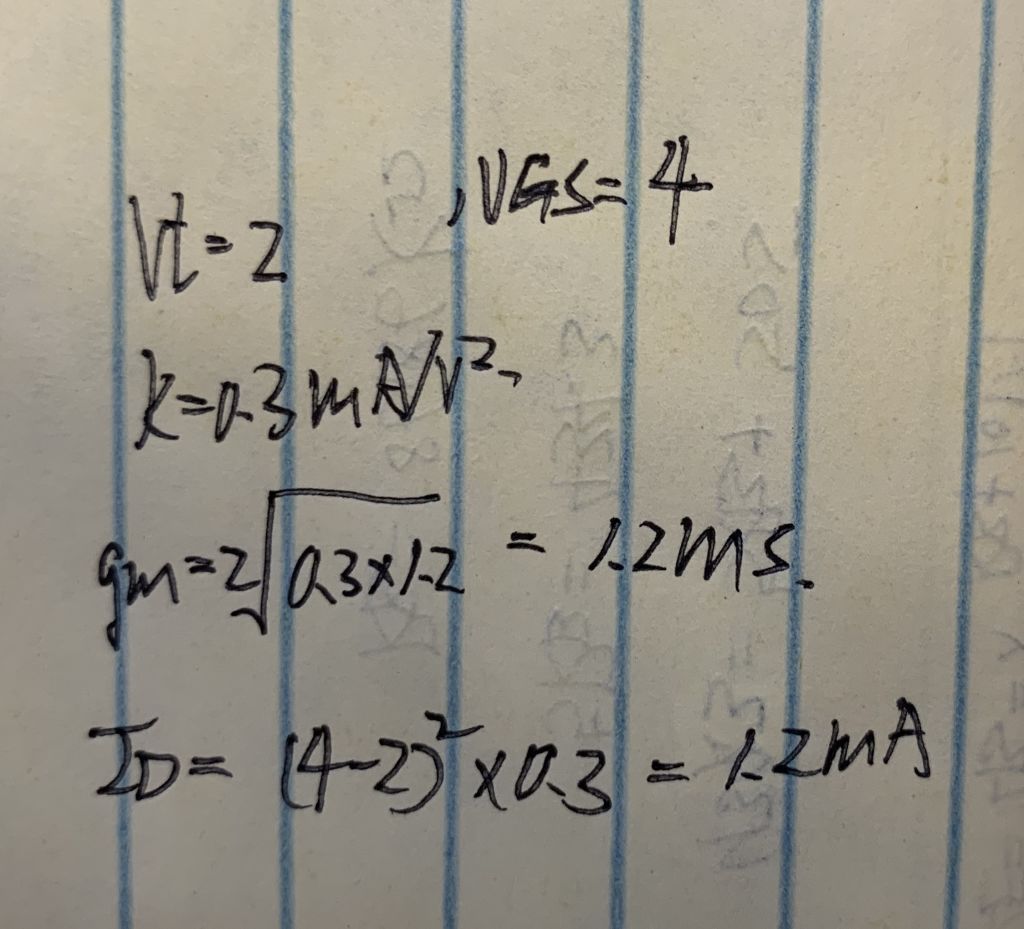 Vt=2 , VGS=4
K=0.3mA/V²,
gm=2√0.3×1.2 = 1.2ms.
ID= (4-2)²×0.3 = 1.2mA